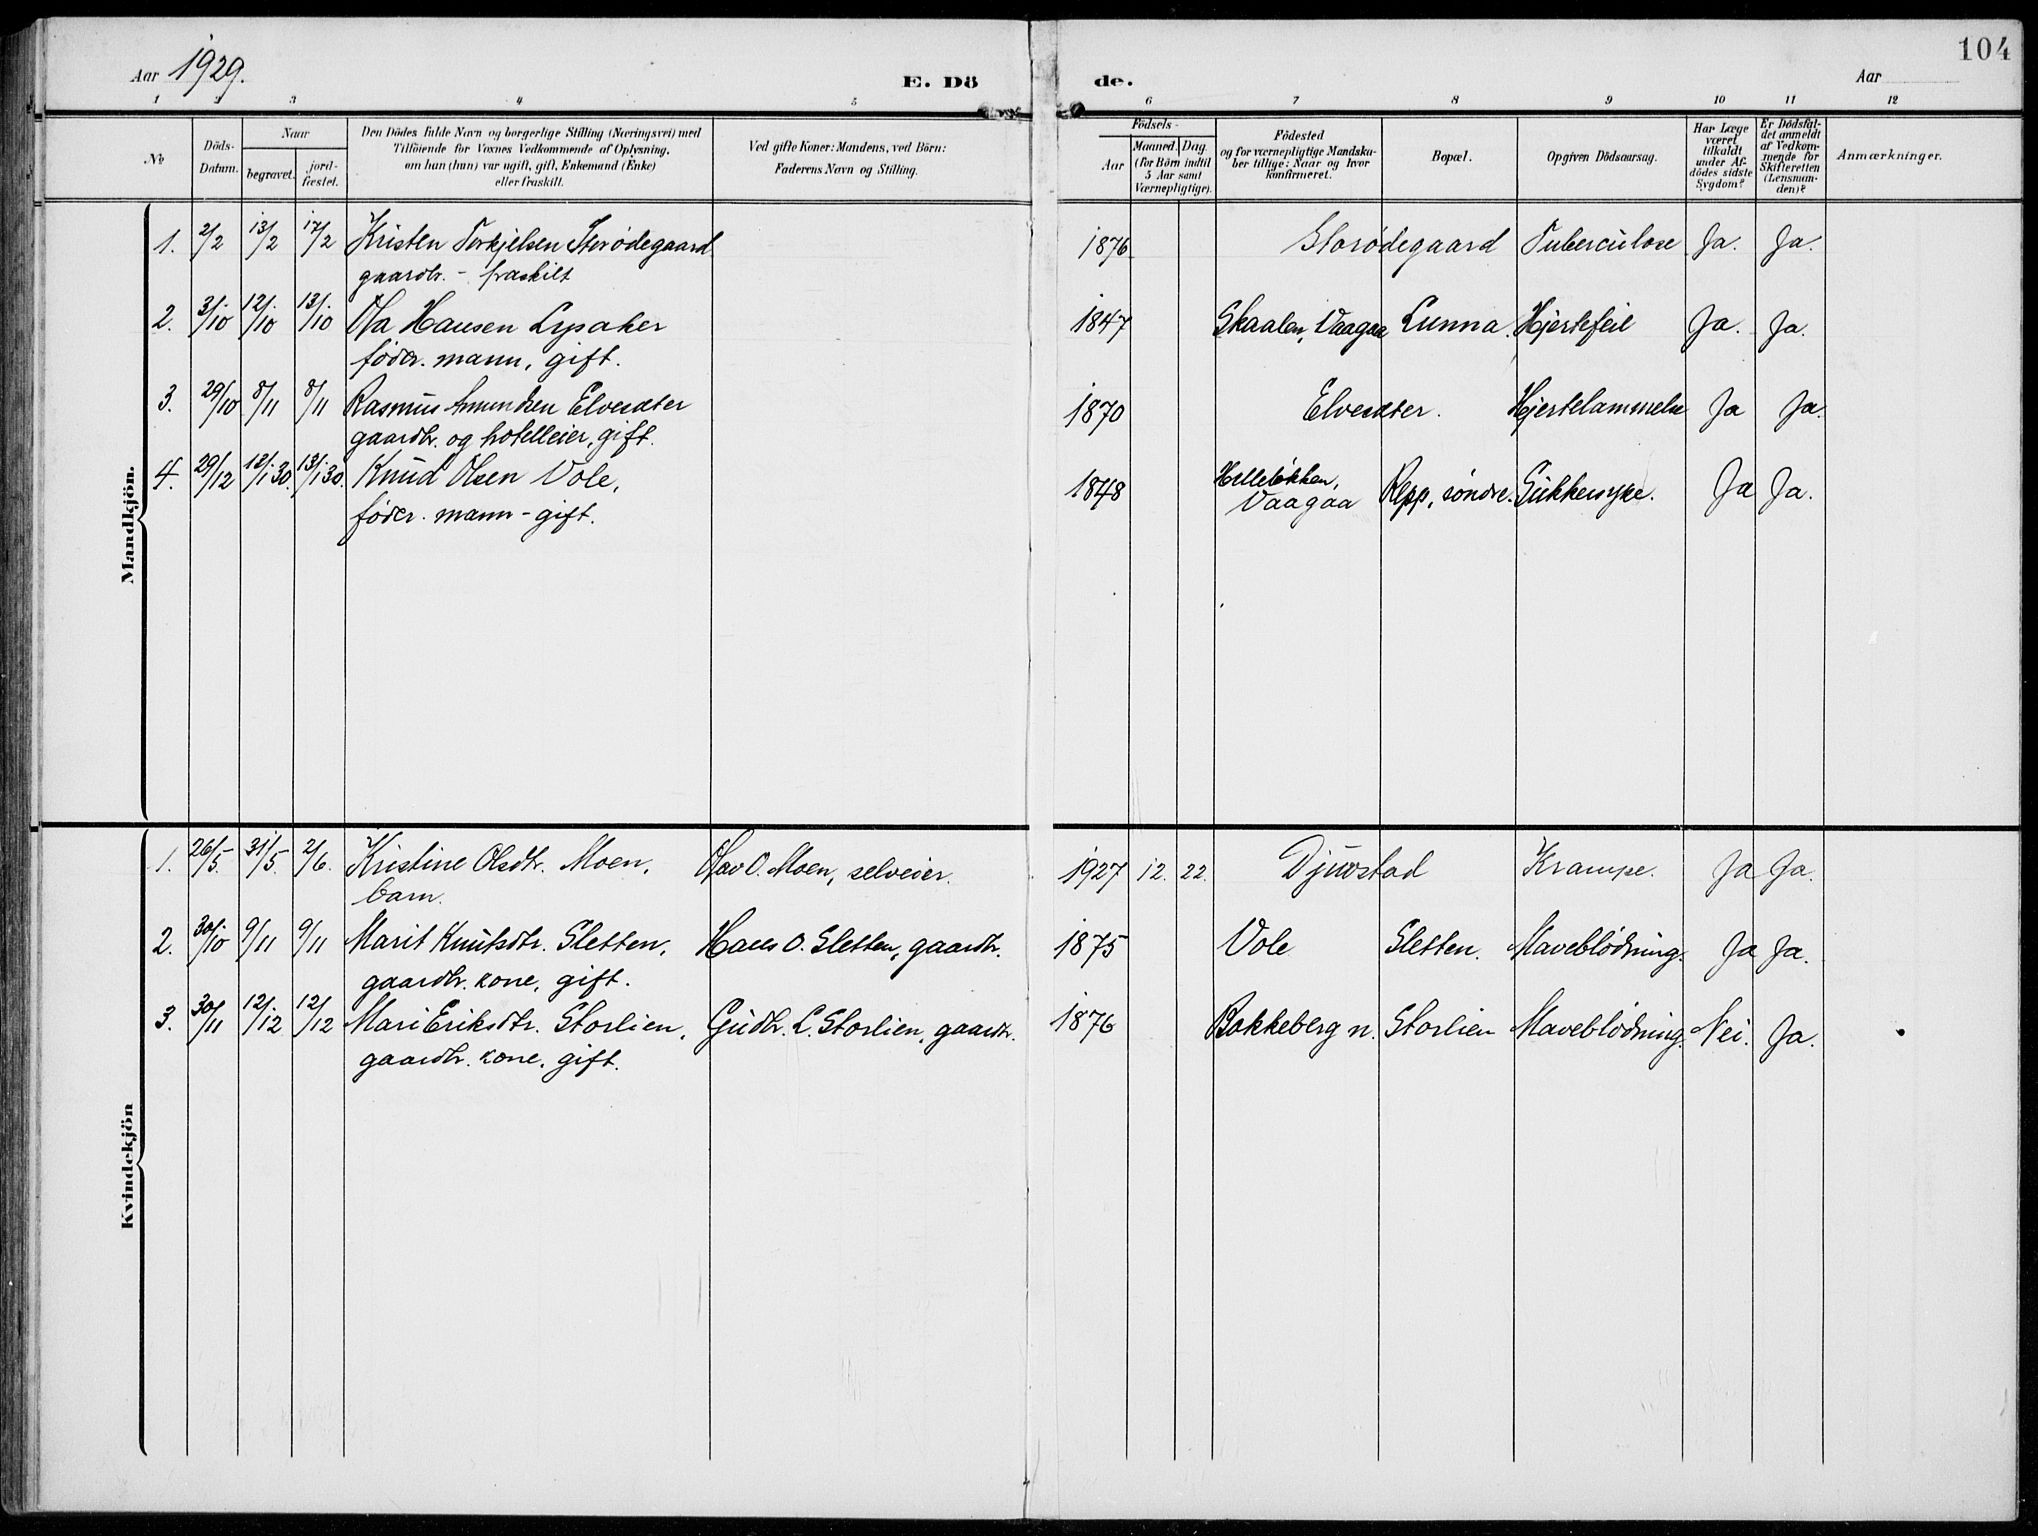 Aar 1929.
E. Dö
de.
Aar
104
1 2 3 4 5 6 7 8 9 10 11 12
No
Döds-
Datum.
Naar
begravet.
jord-
fæstet.
Den Dödes fulde Navn og borgerlige Stilling (Næringsvei) med
Tilföiende for Voxnes Vedkommende af Oplysning,
om han (hun) var ugift, gift, Enkemand (Enke)
eller fraskilt.
Ved gifte Koner: Mandens, ved Börn:
Faderens Navn og Stilling.
Födsels-
Aar
Maaned.
Dag.
(for Börn indtil
5 Aar samt
Værnepligtige).
Födested
og for værnepligtige Mandska-
ber tillige: Naar og hvor
konfirmeret.
Bopæl.
Opgiven Dödsaarsag.
Har Læge
været
tilkaldt
under Af-
dödes sidste
Sygdom?
Er Dödsfal-
det anmeldt
af Vedkom-
mende for
Skifteretten
(Lensman-
den)?
Anmærkninger.
Mandkjön.
1. 2/2 13/2 17/2 Kristen Torkjelsen Storødegaard 1876 Storødegaard Tuberculose Ja. Ja.
gaardbr. - fraskilt
2. 3/10 12/10 13/10 Ola Hansen Lysaker 1847 Skaalen, Vaagaa Lunna. Hjertefeil Ja. Ja.
føder. mann, gift.
3. 29/10 8/11 8/11 Rasmus Amundsen Elvesæter 1870 Elvesæter. Hjertelammelse Ja Ja.
gaardbr. og hotelleier, gift.
4. 29/12 12/1 30. 13/1 30. Knud Olsen Vole, 1848 Helleløkken, Vaagaa Repp, søndre. Sukkersyke. Ja Ja.
føder. mann - gift.
Kvindekjön
1. 26/5. 31/5. 2/6. Kristine Olsdtr. Moen, Olav O. Moen, selveier. 1927 12. 22. Djuvstad Krampe. Ja Ja.
barn.
2. 30/10 9/11 9/11 Marit Knutsdtr. Sletten, Hans O. Sletten, gaardbr. 1875 Vole Sletten. Maveblødning. Ja Ja.
gaardbr. kone, gift.
3. 30/11 12/12 12/12 Mari Eriksdtr. Storlien, Gudbr. L. Storlien, gaardbr. 1876 Bakkeberg n. Storlien Maveblødning. Nei. Ja.
gaardbr. kone, gift.